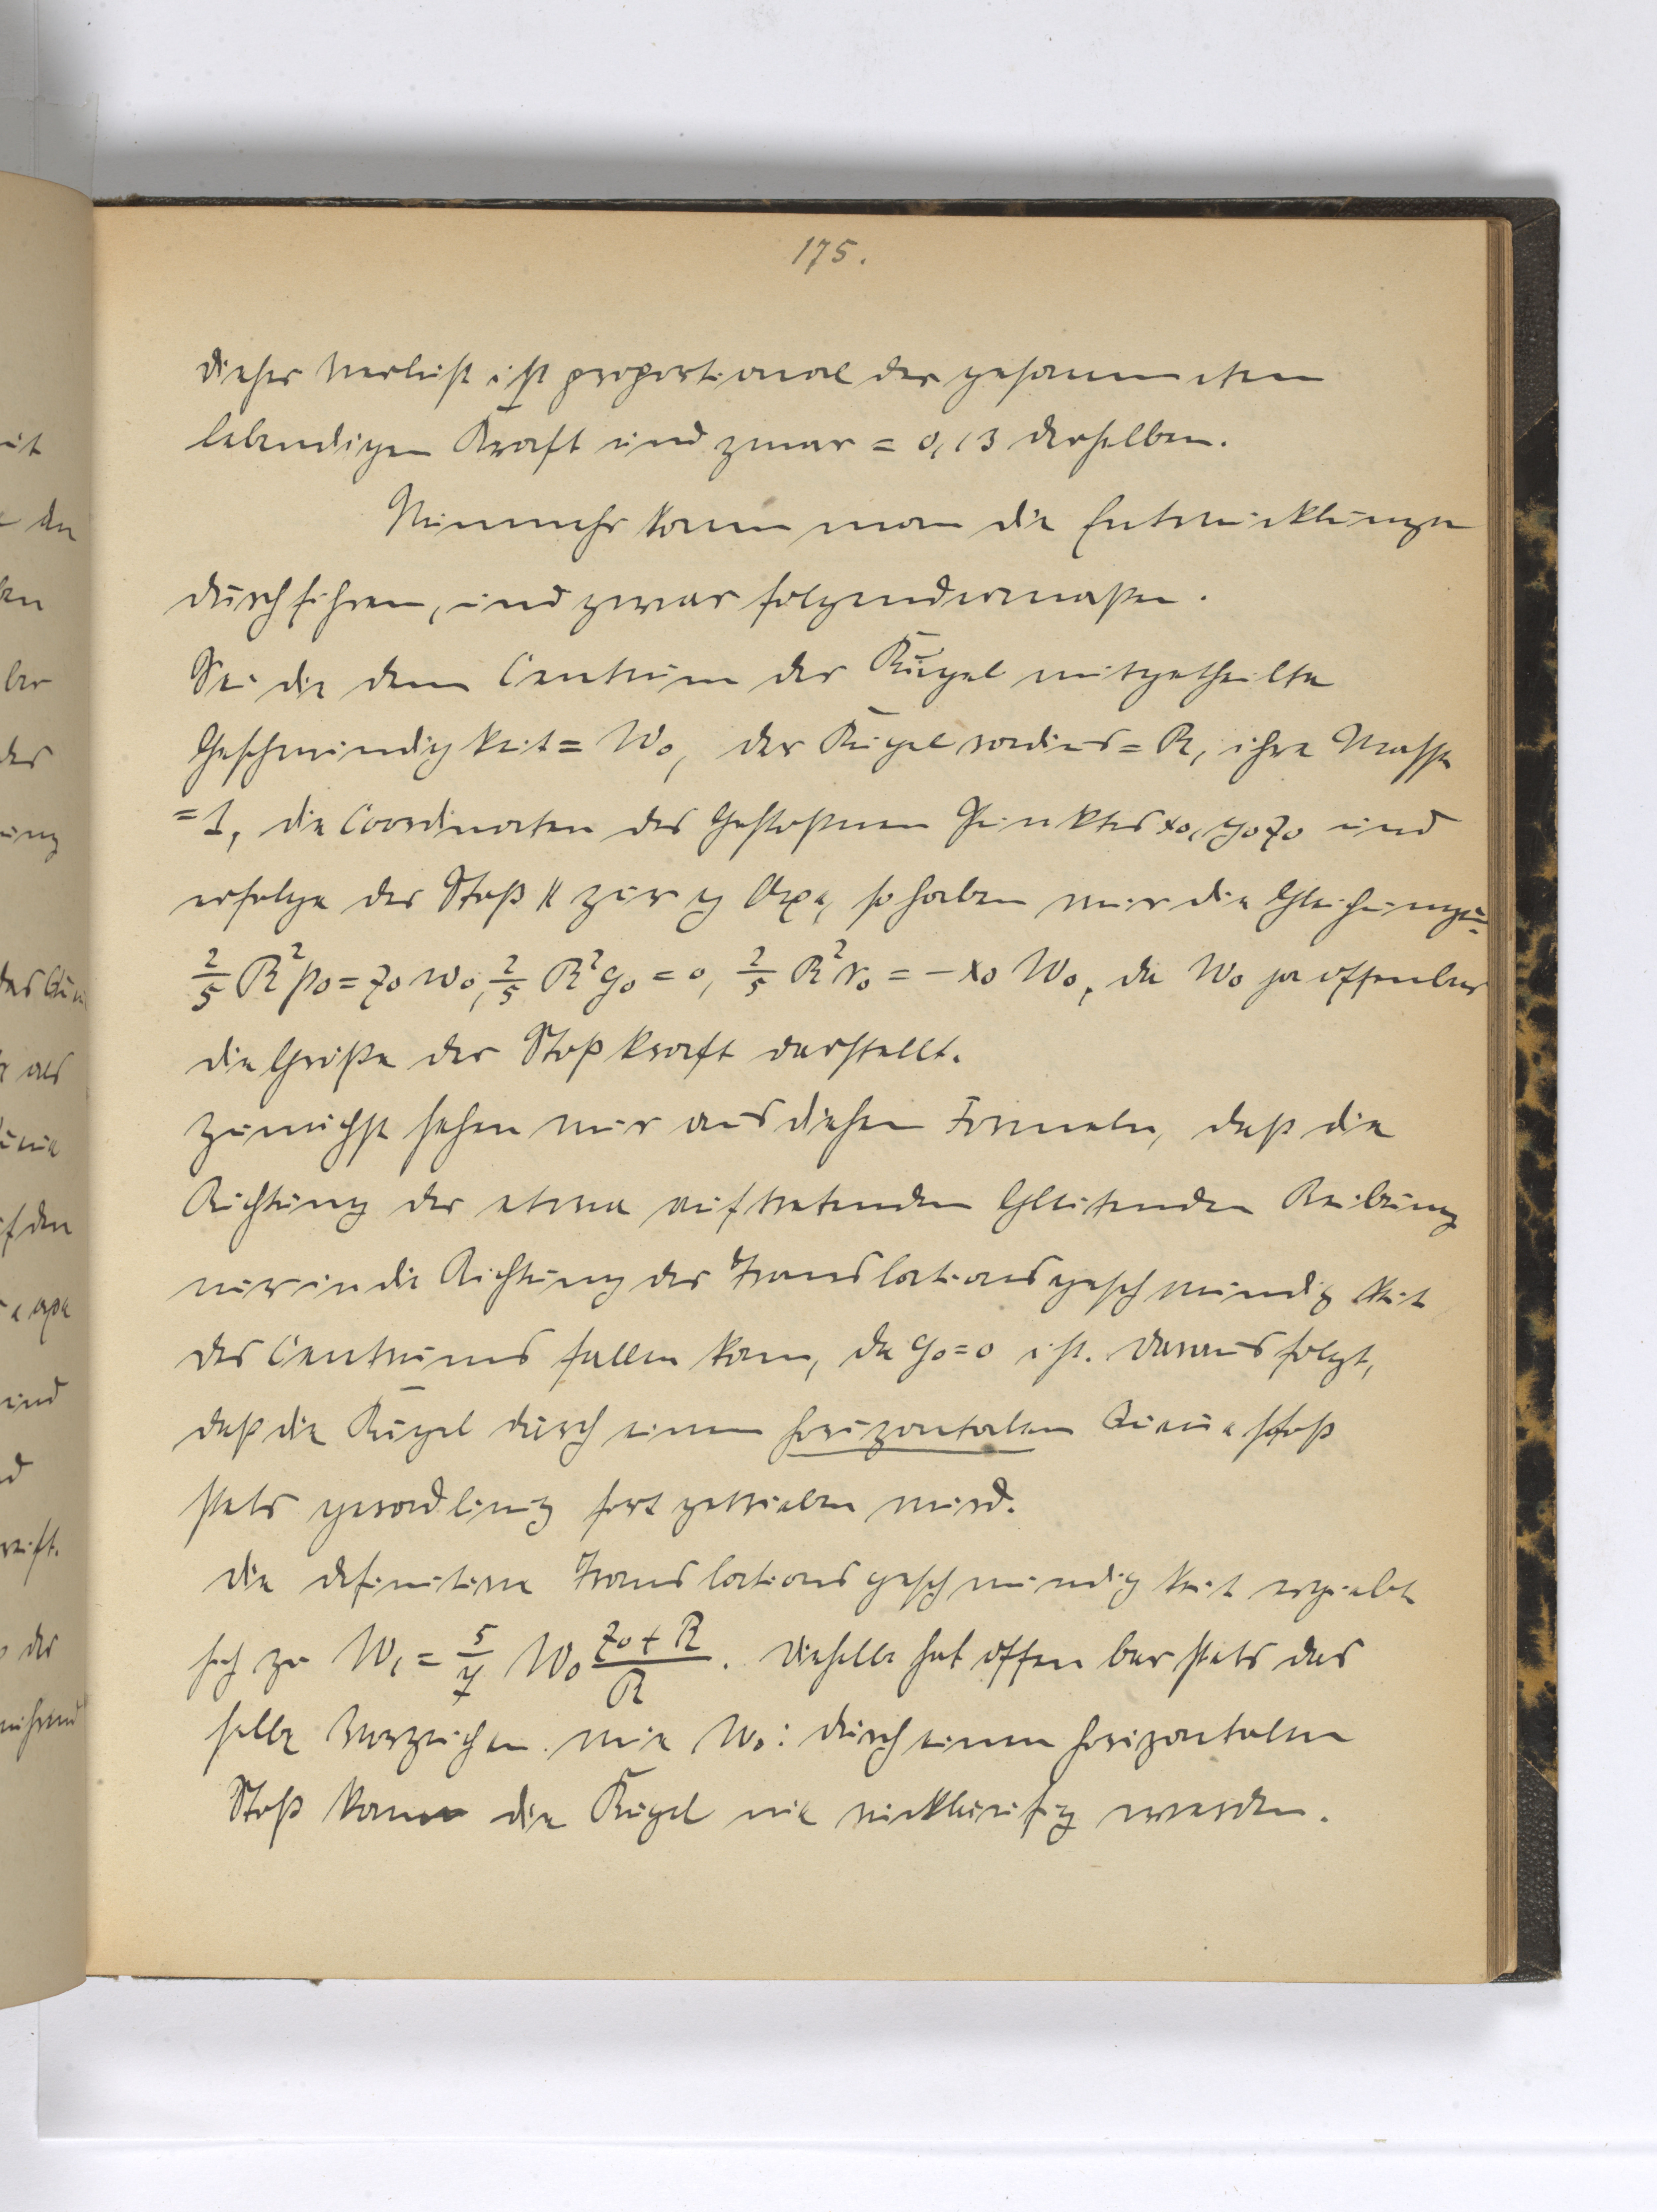 175.
dieser Verlust ist proportional der gesammten
lebendigen Kraft und zwar = 0,13 derselben.
Nunmehr kann man die Entwicklungen
durchführen, und zwar folgendermaßen.
Sei die dem Centrum der Kugel mitgetheilte
Geschwindigkeit = W₀, der Kugelradius = R, ihre Masse
= 1, die Coordinaten des Gestoßenen Punktes x₀, y₀ z₀ und
erfolge der Stoß || zur y Axe, so haben wir die Gleichungen:
2/5 R² p₀ = z₀ w₀, 2/5 R² q₀ = 0, 2/5 R² r₀ = – x₀ W₀, da W₀ ja offenbar
die Größe der Stoßkraft darstellt.
Zunächst sehen wir aus diesen Formeln, daß die
Richtung der etwa auftretenden Gleitenden Reibung
nur in die Richtung der Translationsgeschwindigkeit
des Centrums fallen kann, da q₀ = 0 ist. Daraus folgt,
daß die Kugel durch einen horizontalen Queuestoß
stets geradlinig fortgetrieben wird.
Die definitive Translationsgeschwindigkeit ergiebt
sich zu W₁ = 5/7 W₀ (z₀ + R)/R. Dieselbe hat offenbar stets das
selbe Vorzeichen wie W₀: durch einen horizontalen
Stoß kann die Kugel nie rückläufig werden.